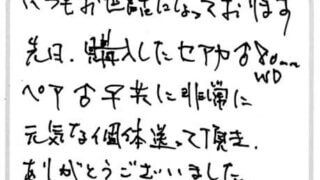 いつもお世話になっております
先日、購入したセアカ♂80mm
WD
ペア♂♀共に非常に
元気な個体送って頂き、
ありがとうございました。